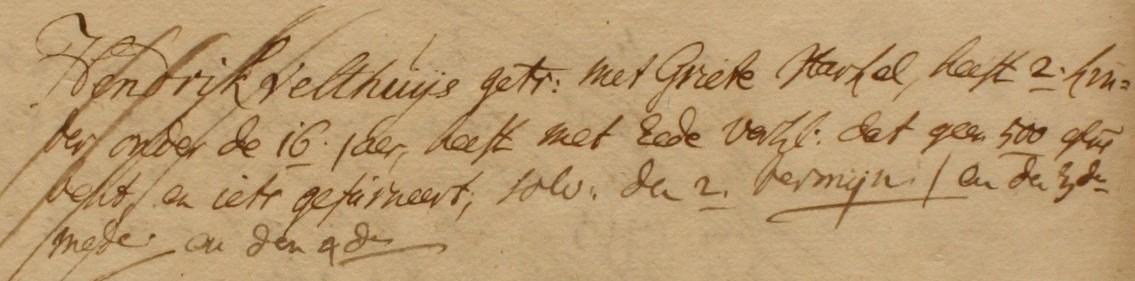 Hendrik Velthuijs getr: met Griete Harkel, heeft 2. kin=
der onder de 16. jaer, heeft met Eede verkl: dat geen 500 gld
besit, en iets gefurneert, solv: den 2. termijn / en den 3den
mede en den 4de